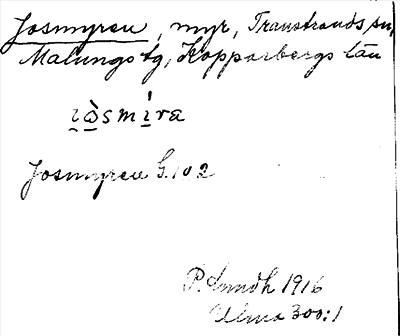 Josmyren, myr, Transtrands sn,
Malungs tg, Kopparbergs län
i̯ò̱smì̱ra
Josmyren G.102
P. Lundh 1916
Ulma 300:1